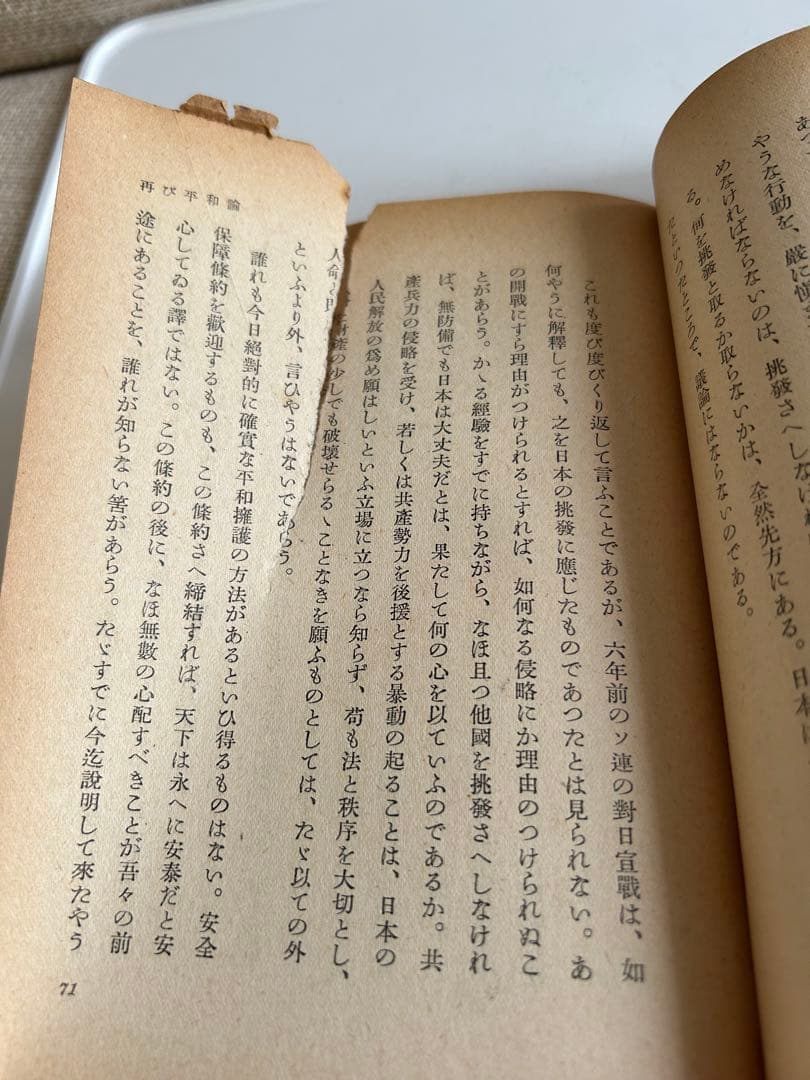 やうな行動を、嚴に愼
めなければならないのは、挑發さへしない
る。何を挑發と取るか取らないかは、全然先方にある。日本
といつたところで、議論にはならないのである。
これも度び度びくり返して言ふことであるが、六年前のソ連の對日宣戰は、如
何やうに解釋しても、之を日本の挑發に應じたものであつたとは見られない。あ
の開戰にすら理由がつけられるとすれば、如何なる侵略にか理由のつけられぬこ
とがあらう。かゝる經驗をすでに持ちながら、なほ且つ他國を挑發さへしなけれ
ば、無防備でも日本は大丈夫だとは、果たして何の心を以ていふのであるか。共
產兵力の侵略を受け、若しくは共產勢力を後援とする暴動の起ることは、日本の
人民解放の爲め願はしいといふ立場に立つなら知らず、苟も法と秩序を大切とし、
人命と財產の少しでも破壞せらるゝことなきを願ふものとしては、たゞ以ての外
といふより外、言ひやうはないであらう。
誰れも今日絕對的に確實な平和擁護の方法があるといひ得るものはない。安全
保障條約を歡迎するものも、この條約さへ締結すれば、天下は永へに安泰だと安
心してゐる譯ではない。この條約の後に、なほ無數の心配すべきことが吾々の前
途にあることを、誰れが知らない筈があらう。たゞすでに今迄說明して來たやう
再び平和論
71